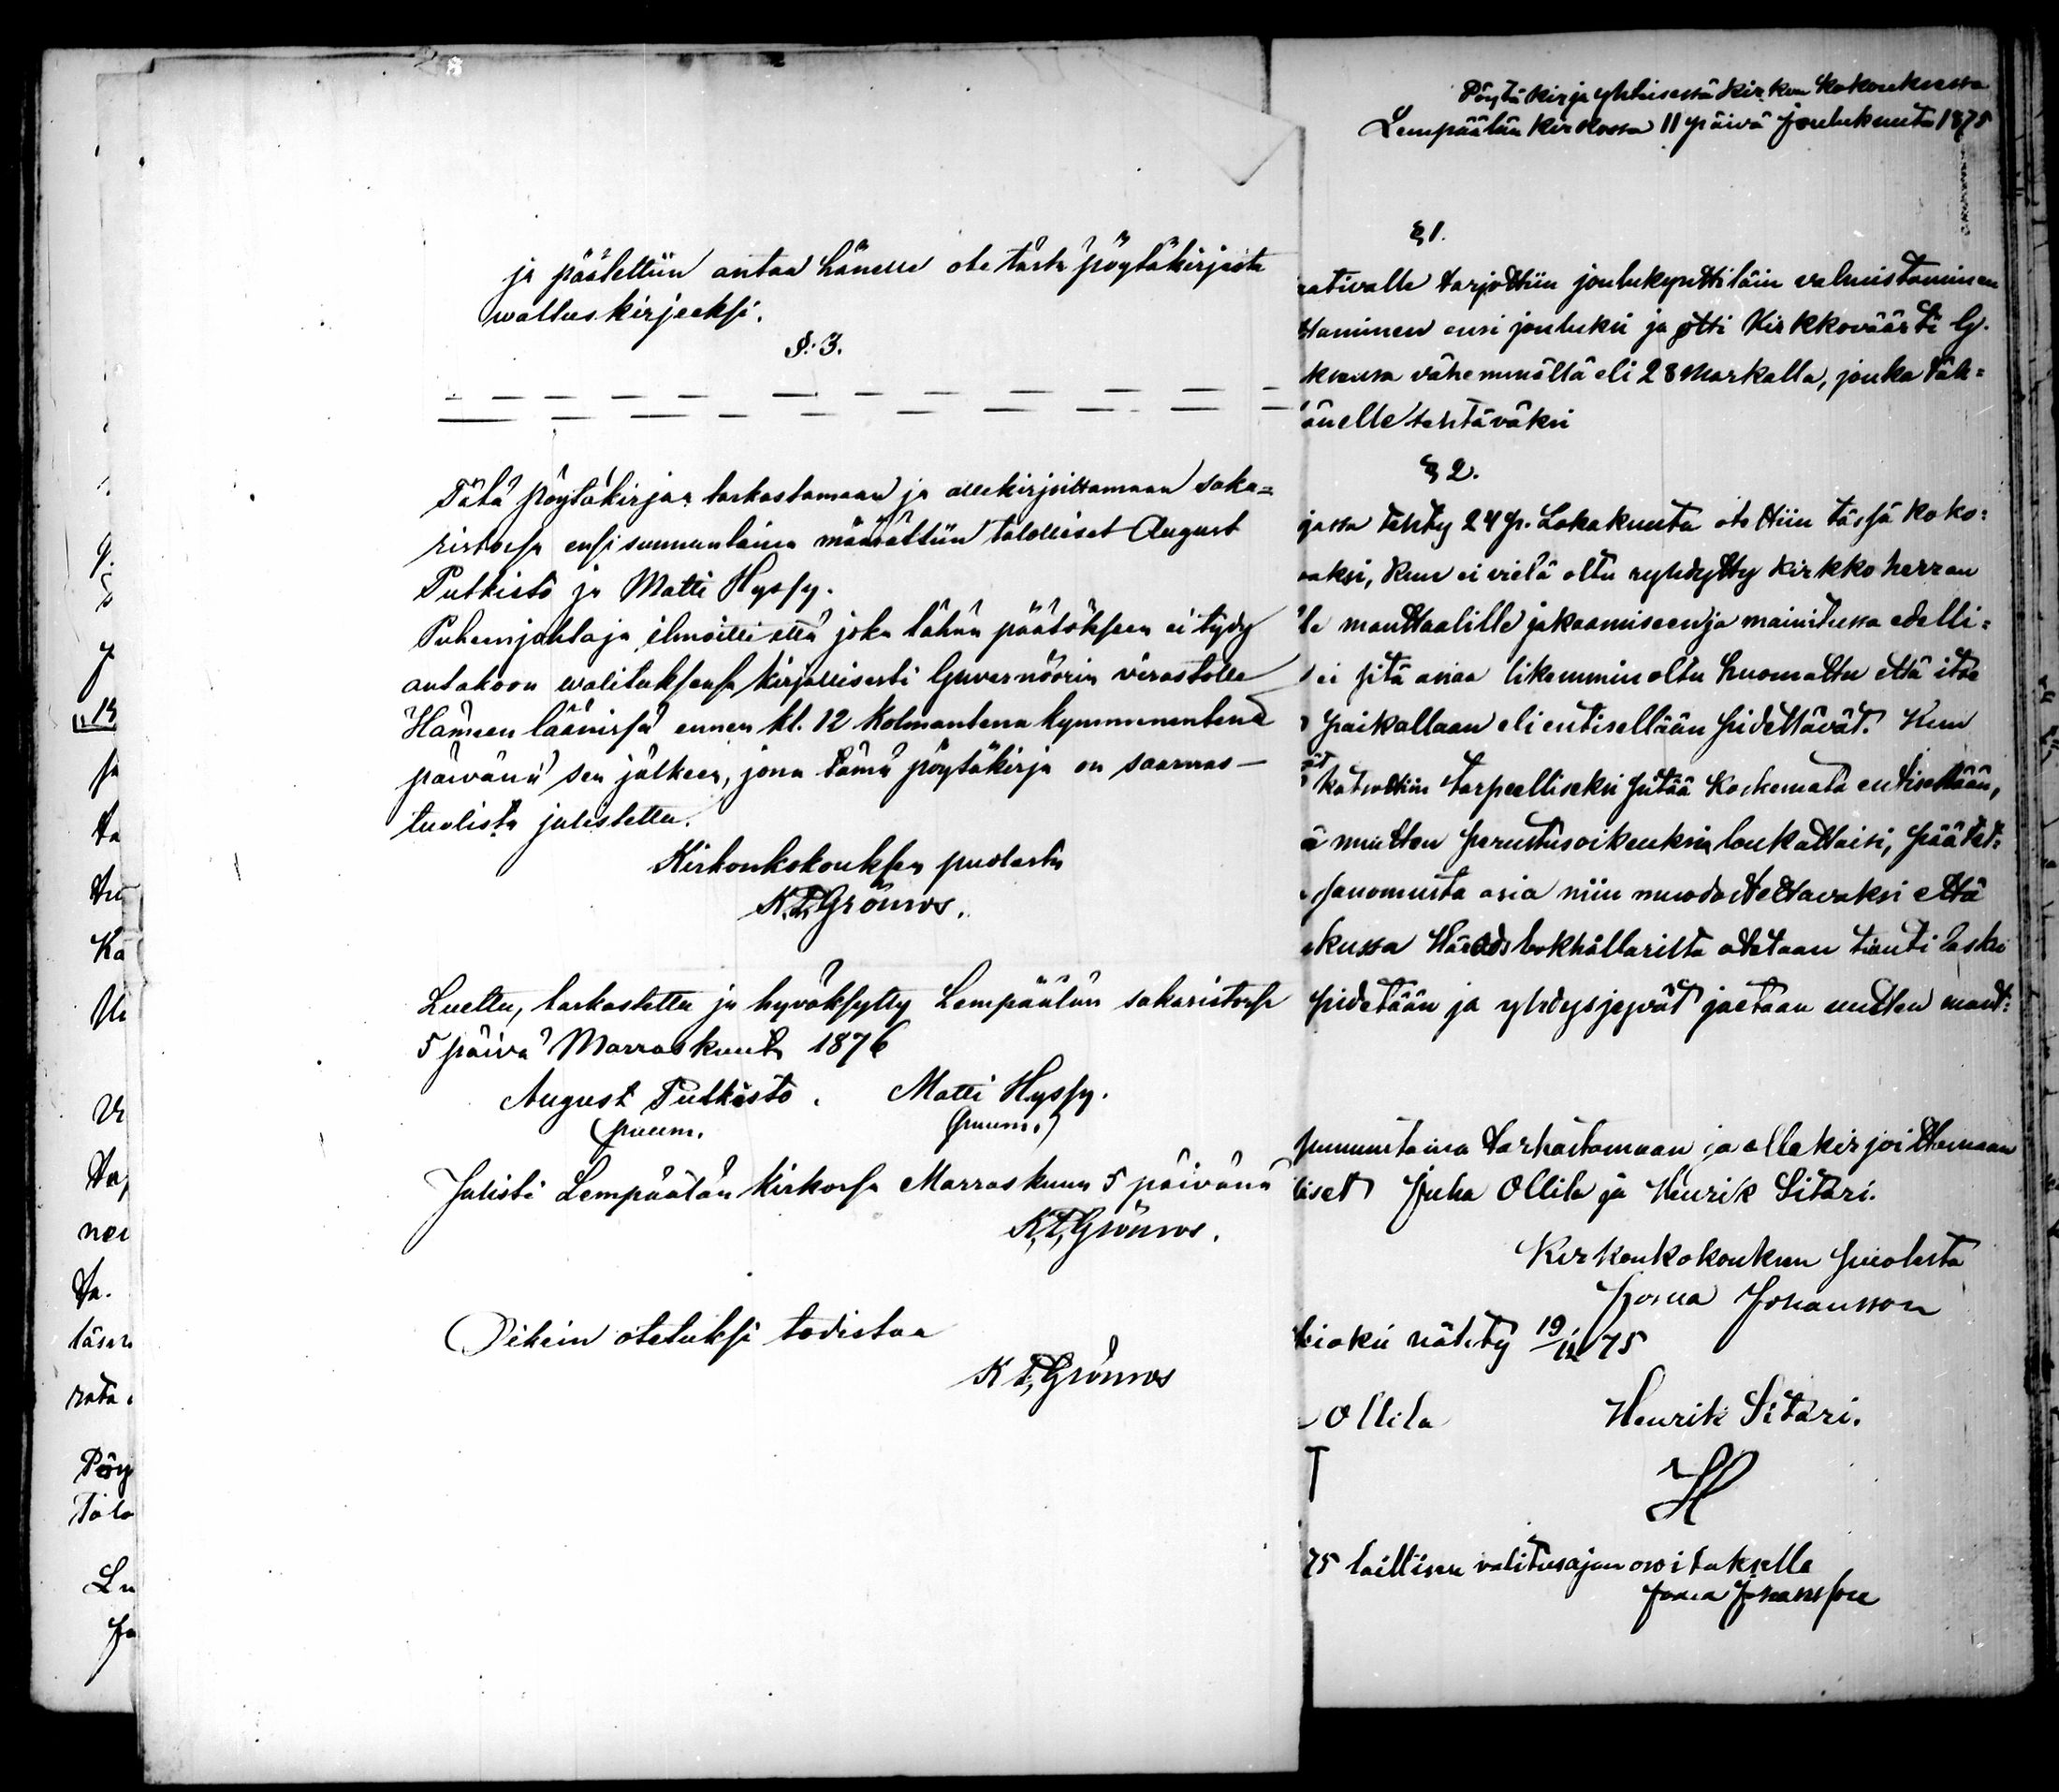 ja päätettiin antaa hänelle ote tästä pöytäkirjasta
waltuskirjeeksi.
§: 3.
Tätä pöytäkirjaa tarkastamaan ja allekirjoittamaan saka=
ristossa ensi sunnuntaina määrättiin talolliset August
Putkisto ja Matti Hyssy.
Puheenjohtaja ilmoitti että joka tähän päätökseen ei tydy
antakoon walituksensa kirjallisesti Guvernöörin virastolle
Hämeen läänissä ennen kl. 12 kolmantena kymmenentenä
päivänä sen jälkeen, jona tämä pöytäkirja on saarnas-
tuolista julistettu.
Kirkonkokouksen puolesta
K. F. Grönros.
Luettu, tarkastettu ja hyväksytty Lempäälän sakaristossa
5 päivä Marraskuuta 1876
August Putkisto. Matti Hyssy.
(puum. (puum.)
Julisti Lempäälän kirkossa Marraskuun 5 päivänä
K. F. Grönros.
Oikein otetuksi todistaa
K F, Grönros
Pöytäkirja yhteisessä kirkon kokouksessa
Lempäälän kirkossa 11 päivä joulukuuta 1875
§ 1.
tarjottiin joulukynttiläin valmistaminen
ttaminen ensi jouluksi ja otti Kirkkoväärti G.
vähemmällä eli 28 Markalla, jonka täh=
änelle tehtäväksi
§ 2.
jassa tehty 24 p. Lokakuuta otettiin tässä koko=
aaksi, kun ei vielä oltu ryhdytty kirkkoherran
lle manttaalille jakaamiseen ja mainitussa edelli=
ei sitä asiaa likemmin oltu huomattu että itse
paikallaan eli entisellään pidettävät. Kun
katsottiin tarpeelliseksi pitää koskemata entisellään,
ä muitten perustusoikeuksia loukattaisi, päätet=
sanomusta asia niin muodostettavaksi että
kussa Häradsbokhållarilta otetaan tiunti lasku
pidetään ja yhdysjyvät jaetaan uutten mant=
sunnuntaina tarkastamaan ja allekirjoittamaan
liset Juha Ollila ja Henrik Sitari.
Kirkonkokouksen puolesta
Joona Johansson
oikeiksi nähty 19/12 75
Ollila Henrik Sitari.
T H
75 laillisen valitusajan osoituksella
Joona Johansson